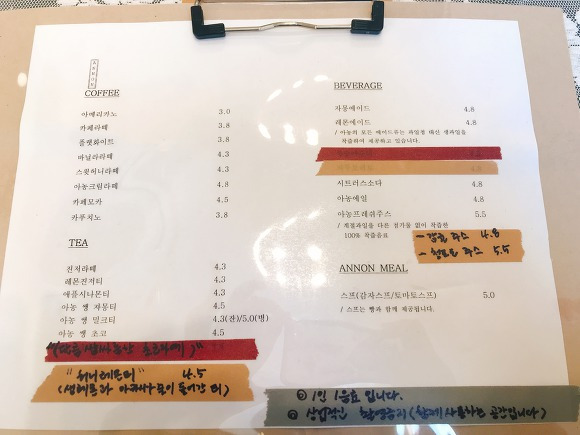 COFFEE
아메리카노 3.0
카페라떼 3.8
플랫화이트 3.8
바닐라라떼 4.3
스윗허니라떼 4.3
아농크림라떼 4.8
카페모카 4.5
카푸치노 3.8
TEA
진저라떼 4.3
레몬진저티 4.3
애플시나몬티 4.3
아농 쨍 자몽티 4.5
아농 쨍 밀크티 4.3(잔)/5.0(병)
아농 쨍 초코 4.5
"허니레몬티" 4.5
BEVERAGE
자몽에이드 4.8
레몬에이드 4.8
/ 아농의 모든 에이드류는 과일청 대신 생과일을
착즙하여 제공하고 있습니다.
시트러스소다 4.8
아농에일 4.8
아농프레쉬주스 5.5
/ 계절과일을 다른 첨가물 없이 착즙한
100% 착즙음료
주스 4.8
주스 5.5
ANNON MEAL
스프(감자스프/토마토스프) 5.0
/ 스프는 빵과 함께 제공됩니다.
1인 1음료 입니다.
상업적인 촬영금지(함께 사용하는 공간입니다)